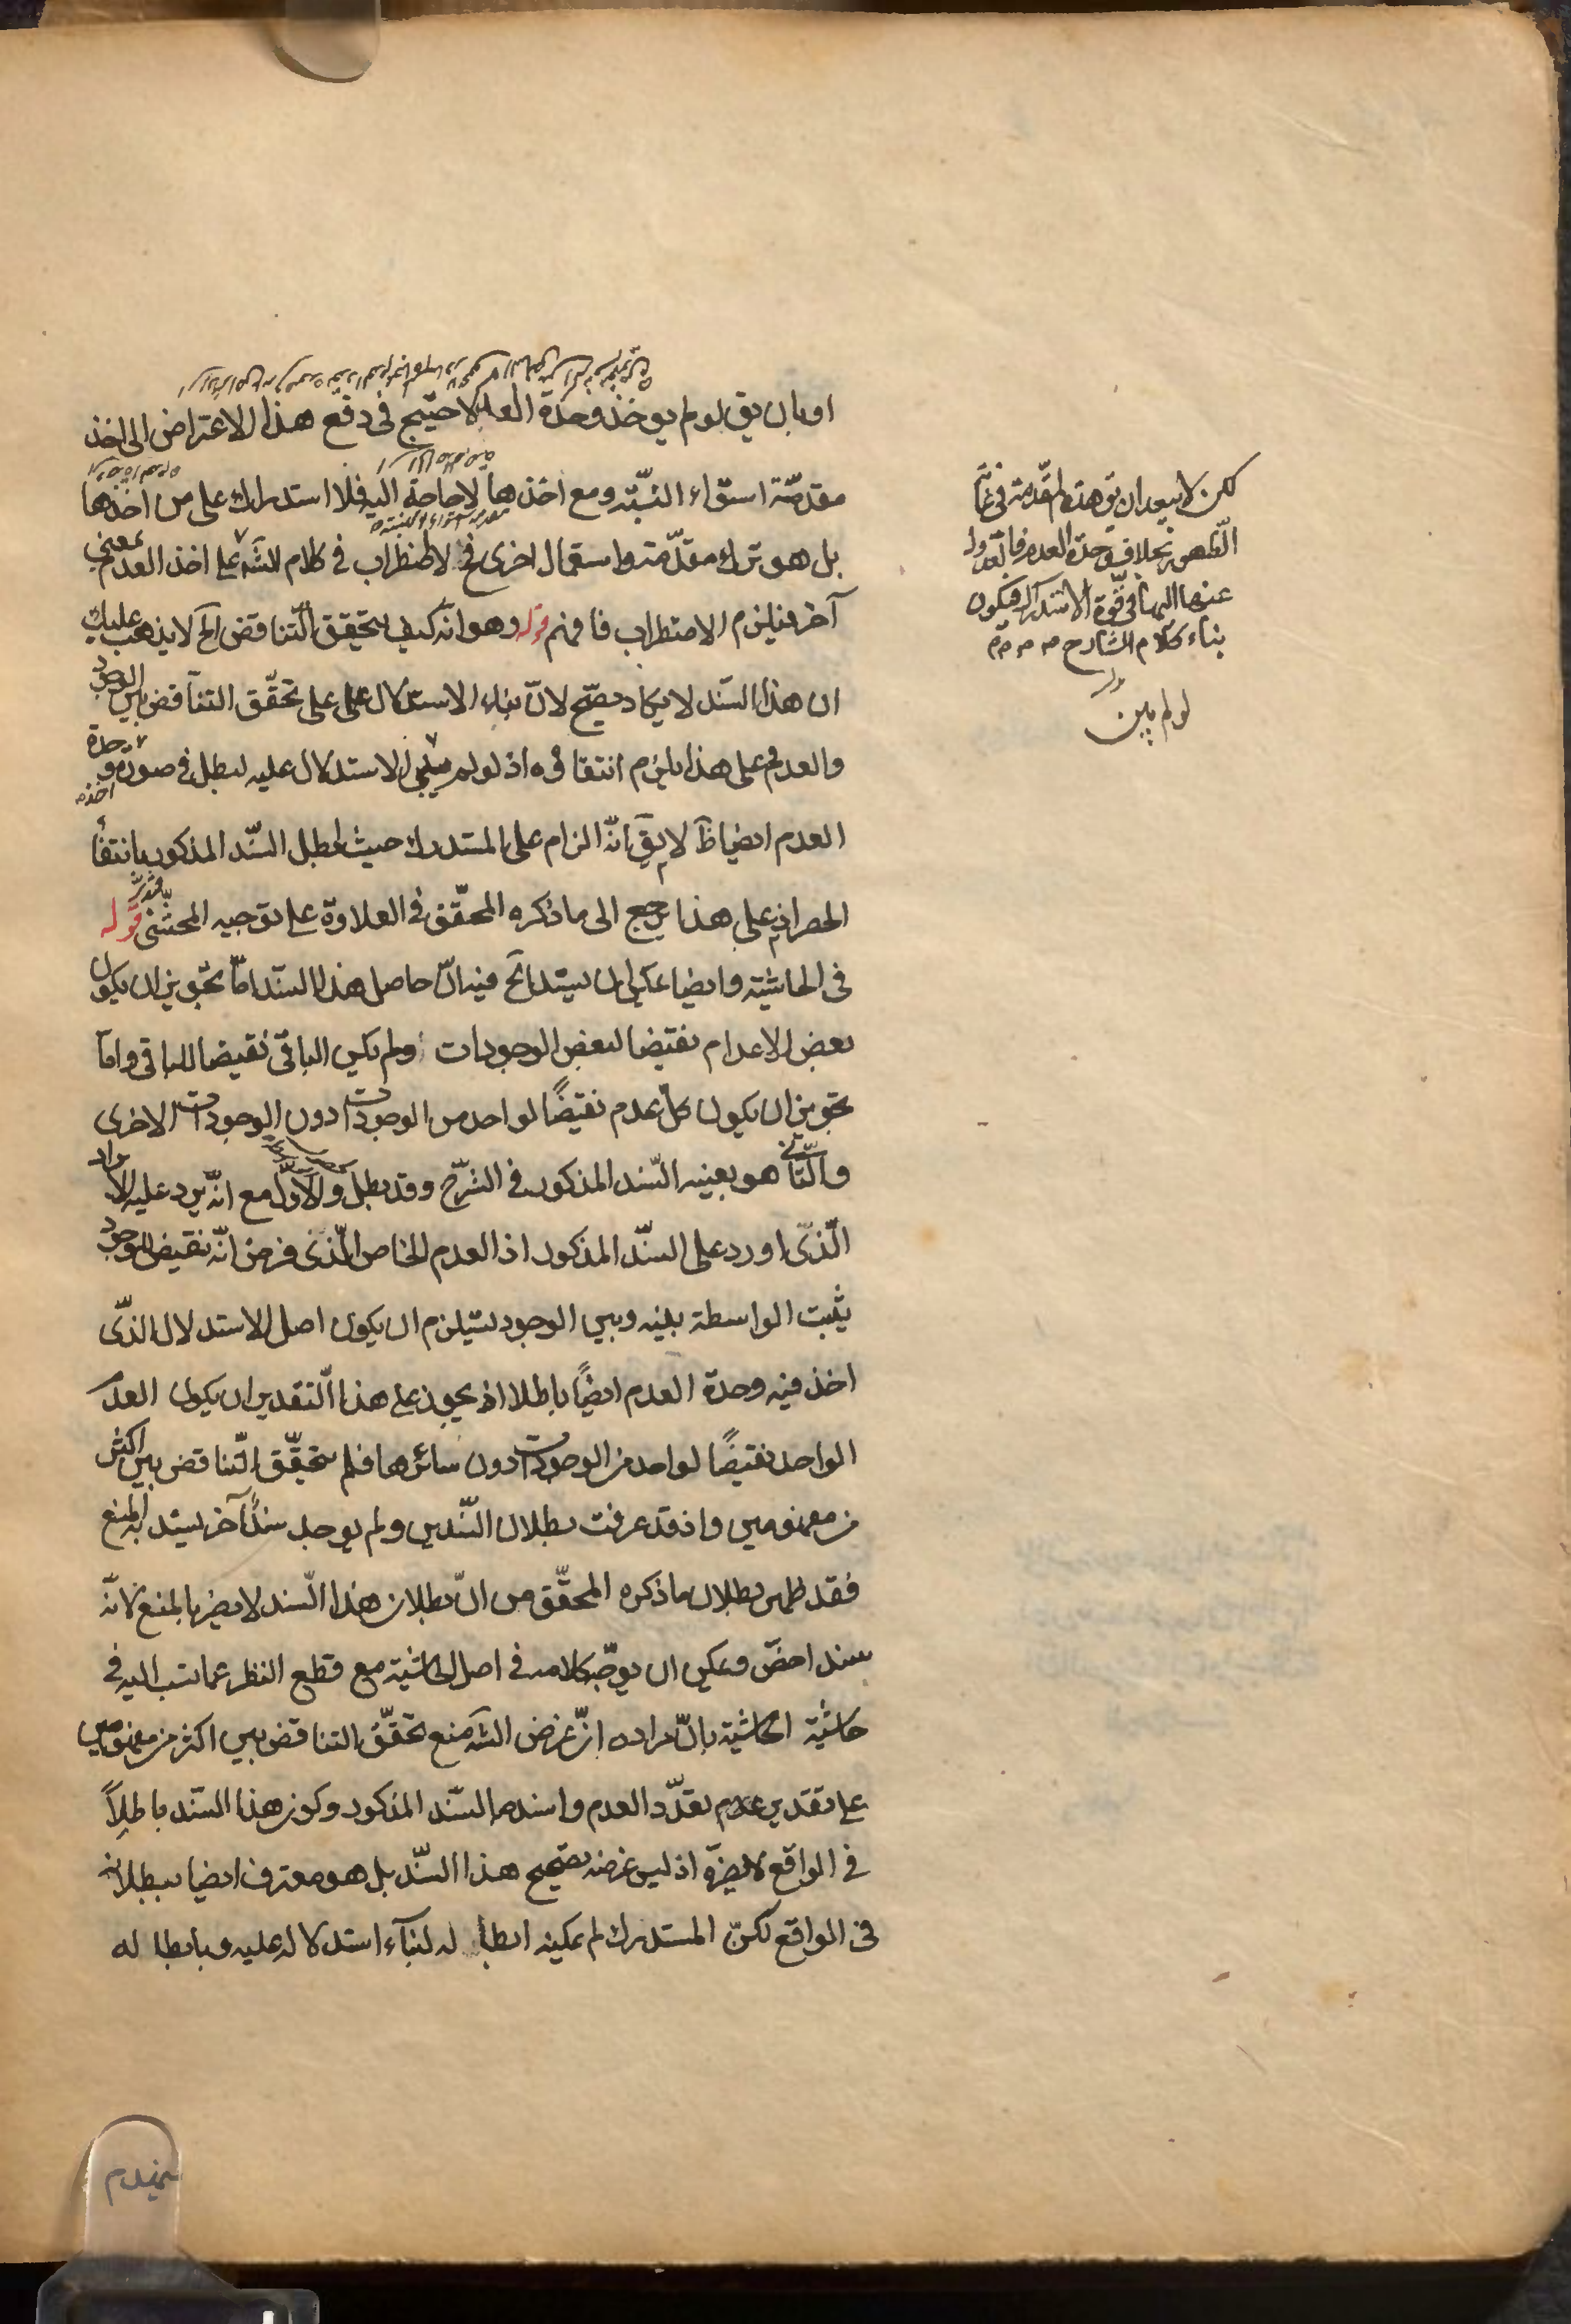 او بان يق لو لم يوخذ وحدة العدم لاحتيج فى دفع هذا الاعتراض الى اخذ
مقدمّة استواء النسّبة ومع اخذها لا حاجة اليه فلا استدراك على من اخذها
بل هو ترك مقدّمة واستعمال اخرى فح لا اضطراب فى كلام الشّه على اخذ العدم بمعنى
آخر فيلزم الاضطراب فافهم قوله وهو انّه كيف يتحقق التّناقض الخ لا يذهب عليك
ان هذا السّند لا يكاد يصحّ لانّ بناء الاستدلال على على تحقّق التناقض بين الوجود
والعدم فعلى هذا يلزم انتفاؤه اذ لو لم يبنى الاستدلال عليه لبطل فى صورة وحدة
العدم ايضا ظآ لا يقّ انّه الزام على المستدرك حيث ابطل السّند المذكور بانتفاء
الحصر اذ على هذا يرجع الى ما ذكره المحقّق فى العلاوة على توجيه المحشّى قوله
فى الحاشية وايضا يمكن ان يستدل الخ فيه انّ حاصل هذا السّند امّا تجويز ان يكون
بعض الاعدام نقيضا لبعض الوجودات ولم يكن الباقى نقيضا للباقى وامّا
تجويز ان يكون كل عدم نقيضًا لواحد من الوجودات دون الوجودات الاخرى
والثّانى هو بعينه السّند المذكور فى الشرّح وقد بطل والاوّل مع انّه يرد عليه الايراد
الّذى اورد على السنّد المذكور اذ العدم الخاص الّذى فرض انّه نقيض للوجود
يثبت الواسطة بينه وبين الوجود يستلزم ان يكون اصل الاستدلال الذّى
اخذ فيه وحدة العدم ايضًا باطلا اذ يجوز على هذا التّقدير ان يكون العدم
الواحد نقيضًا لواحد من الوجودات دون سائرها فلم يتحقّق التّناقض بين اكثر
من مفهومين واذ قد عرفت بطلان السّندين ولم يوجد سندًا آخر يستند به المنع
فقد ظهر بطلان ما ذكره المحقّق من انّ بطلان هذا السّند لا يضر بالمنع لانّه
سند اخصّ ويمكن ان يوجّه كلامه فى اصل الحاشية مع قطع النظر عما نسب اليه فى
حاشية الحاشية بانّ مراده انّ غرض الشّه منع تحقّق التناقض بين اكثر من مفهومين
على تقدير عدم تعدّد العدم واسنده بالسّند المذكور وكون هذا السّند باطلاً
فى الواقع لا يضرّه اذ ليس غرضه تصحيح هذا السّند بل هو معترف ايضا ببطلانه
فى الواقع لكنّ المستدرك لم يمكنه ابطاله لبنآء استدلاله عليه وبابطاله
لكن لا يبعد ان يق هذه المقّدمة فى غاية
الظهور بخلاف وحدة العدم فالعدول
عنها اليها فى قوة الاستدراك فيكون
بناء كلام الشارح
لو لم يبن